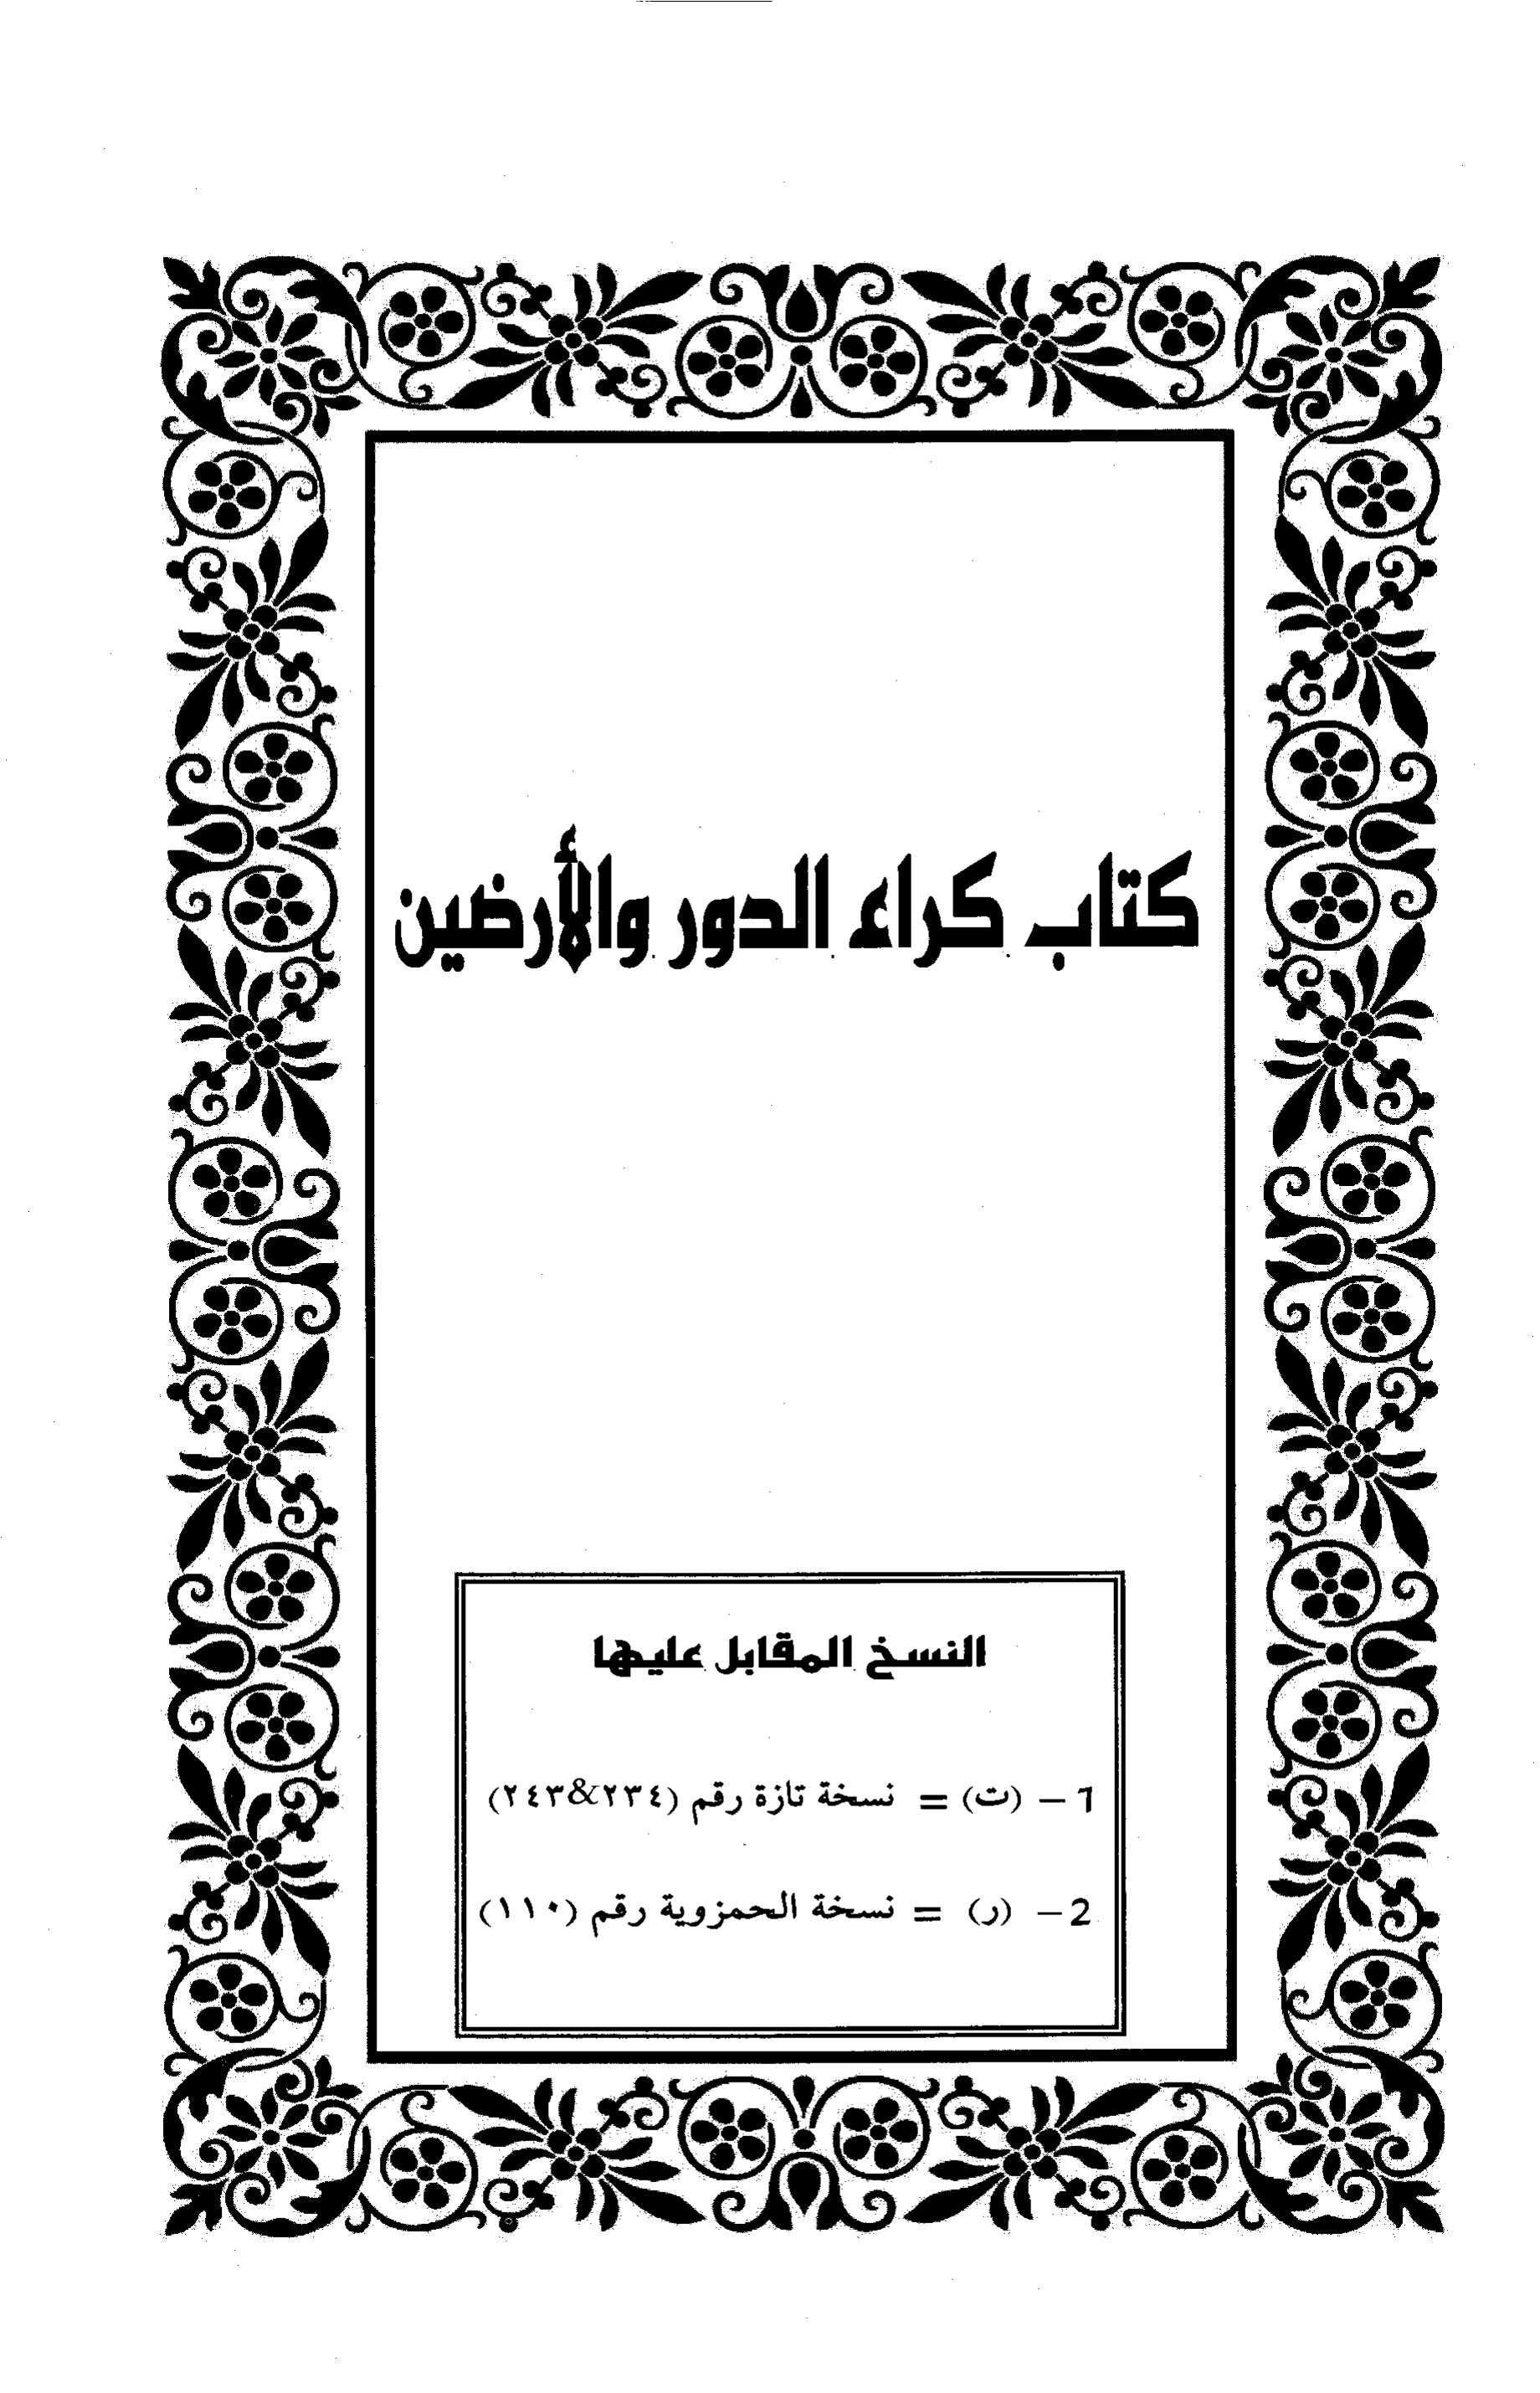 كتاب كراء الدور والأرضين
النسخ المقابل عليها
1 - (ت) = نسخة تازة رقم (٢٣٤&٢٤٣)
2 - (ر) = نسخة الحمزوية رقم (١١٠)